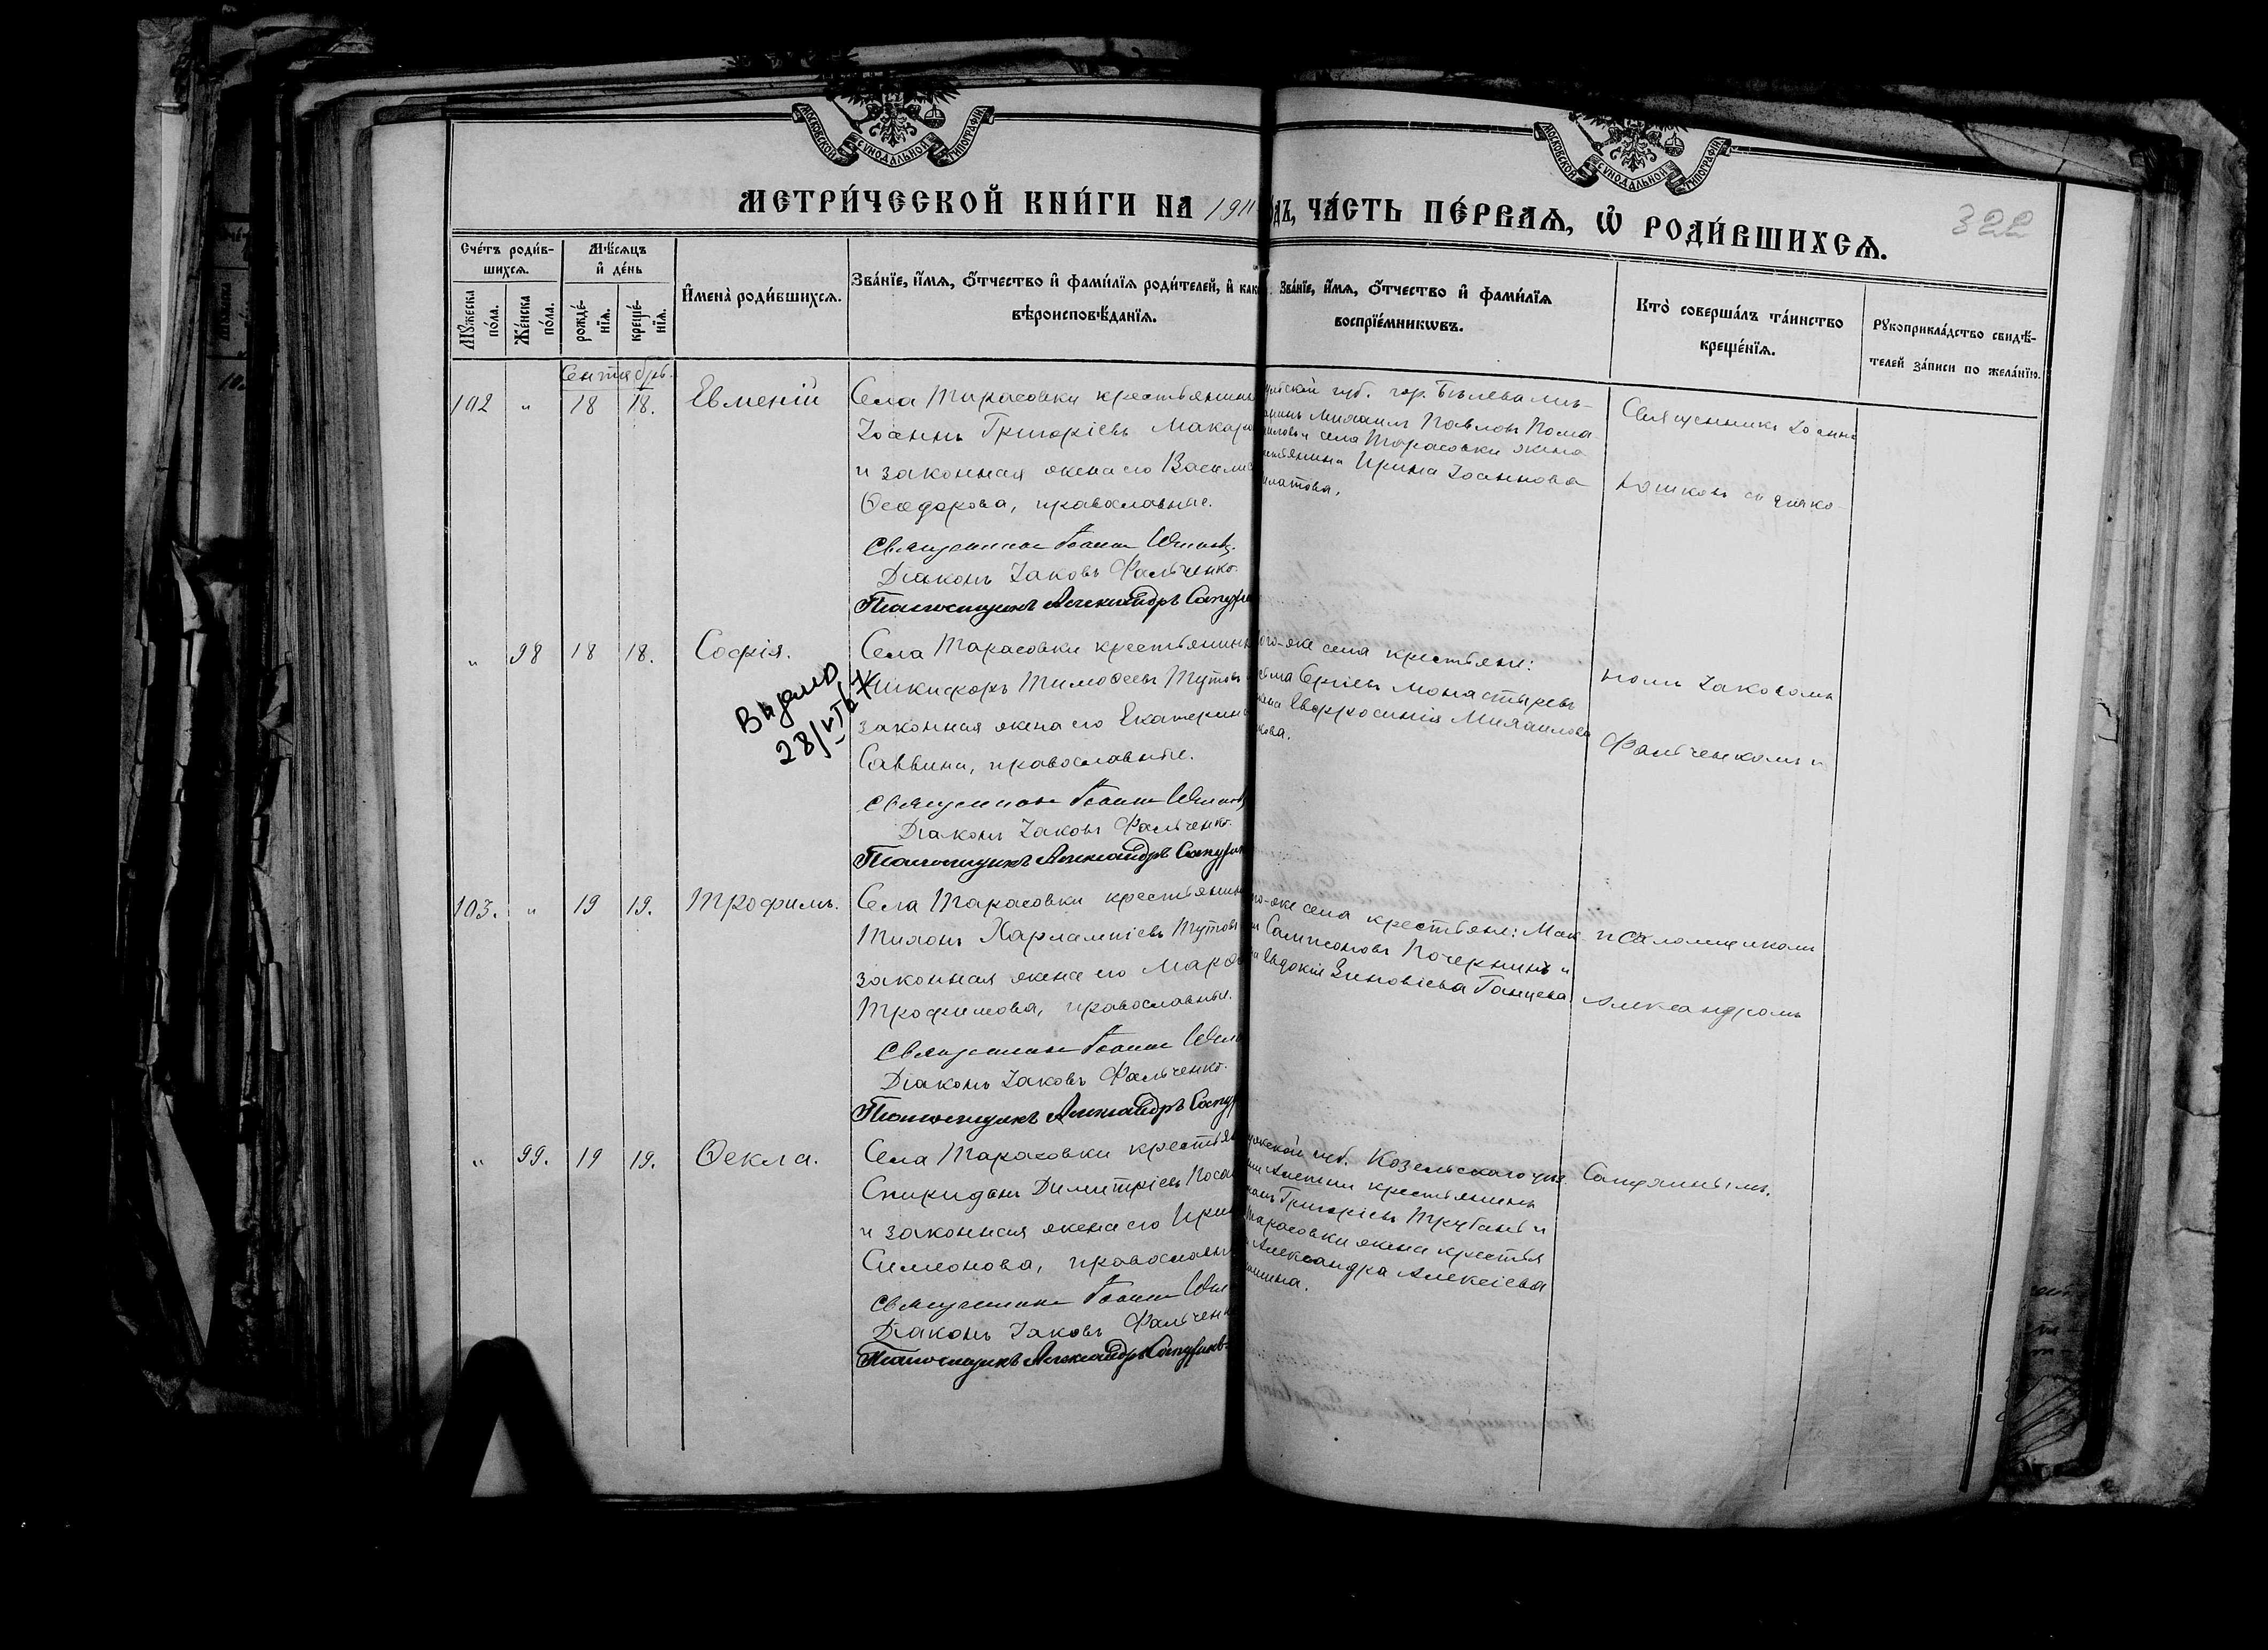 МОСКОВСКОЙ СУНОДАЛЬНОЙ ТИПОГРАФІИ
МОСКОВСКОЙ СУНОДАЛЬНОЙ ТИПОГРАФІИ
МЕТРИ́ЧЕСКОЙ КНИ́ГИ НА 1911
ОДЪ, ЧА́СТЬ ПЕ́РВАЯ, Ѡ҆ РОДИ́ВШИХСЯ.
322
Сче́тъ роди́в-
шихся.
Мѣ́сяцъ
и҆ де́нь
Мꙋ́жеска по́ла.
Же́нска по́ла.
рожде́-нїя.
креще́-нїя.
И҆мена̀ роди́вшихся.
Зва́нїе, и҆́мя, ѻ҆́тчество и҆ фами́лїя роди́телей, и҆ како
вѣроисповѣ́данїя.
Зва́нїе, и҆́мя, ѻ҆́тчество и҆ фами́лїя
воспрїе́мникѡвъ.
Кто̀ соверша́лъ та́инство
креще́нїя.
Рꙋкоприкла́дство свидѣ́-
телей за́писи по жела́нїю.
Сентябрь.
102 " 18 18. Евменій
Села Тарасовки крестьянинъ
Іоаннъ Григоріевъ Макаро
и законная жена его Василис
Ѳеодорова, православные.
Священникъ Іоаннъ
Діаконъ Іаковъ Фальченко.
Псаломщикъ Александръ
губ. гор. Бѣлева мѣ-
Михаилъ Павловъ
села Тарасовки жена
Ирина Іоаннова
Священникъ Іоаннъ
съ діако-
" 98 18 18. Софія.
Выдано
28/VI 67
Села Тарасовки крестьянинъ
Никифоръ Тимоѳеевъ Тутовъ
законная жена его Екатерина
Саввина, православные.
Священникъ Іоаннъ
Діаконъ Іаковъ Фальченко.
Псаломщикъ Александръ
ого-же села крестьяне:
Сергіевъ Монастыревъ
Евфросинія Михаилова
кова.
номъ Іаковомъ
Фальченкомъ и
103. " 19 19. Трофимъ.
Села Тарасовки крестьянинъ
Тихонъ Харлампіевъ Тутовъ
законная жена его Марѳа
Трофимова, православные.
Священникъ Іоаннъ
Діаконъ Іаковъ Фальченко.
Псаломщикъ Александръ
го-же села крестьяне: Мак-
Сампсоновъ и
Евдокія Зиновіева
псаломщикомъ
Александромъ
" 99. 19 19. Ѳекла.
Села Тарасовки крестьян
Спиридонъ Димитріевъ
и законная жена его Ирин
Симеонова, православн
Священникъ Іоаннъ
Діаконъ Іаковъ Фальченк
Псаломщикъ Александръ
губ. Козельскаго уѣз.
крестьянинъ
Григорьевъ и
Тарасовки жена крестья
Александра Алексіева